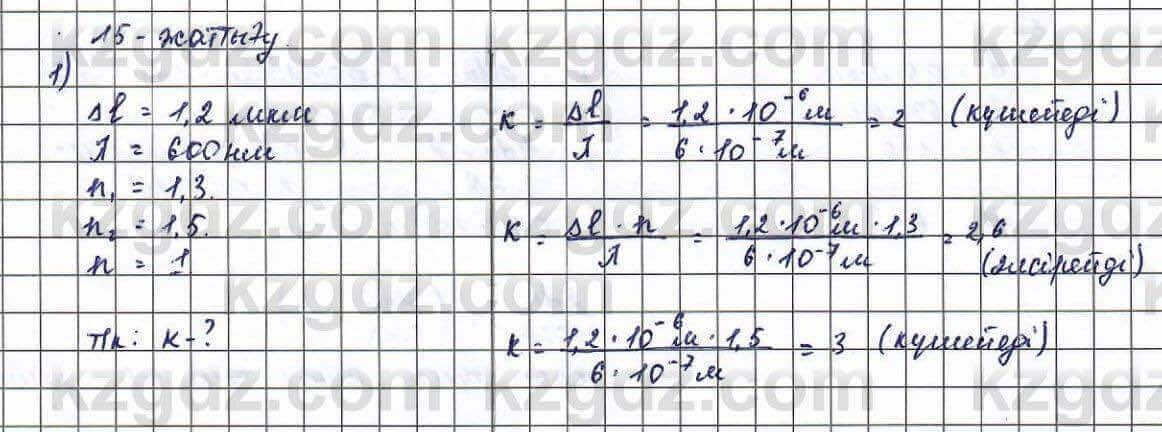 15-жаттығу.
1)
Δl = 1,2 мкм
λ = 600 нм
n₁ = 1,3.
n₂ = 1,5.
n = 1
Тк: k-?
k = Δl / λ = 1,2 · 10⁻⁶ м / 6 · 10⁻⁷ м = 2 (күшейтеді)
k = Δl · n / λ = 1,2 · 10⁻⁶ м · 1,3 / 6 · 10⁻⁷ м = 2,6 (әлсірейді)
k = 1,2 · 10⁻⁶ м · 1,5 / 6 · 10⁻⁷ м = 3 (күшейтеді)
kzgdz.com